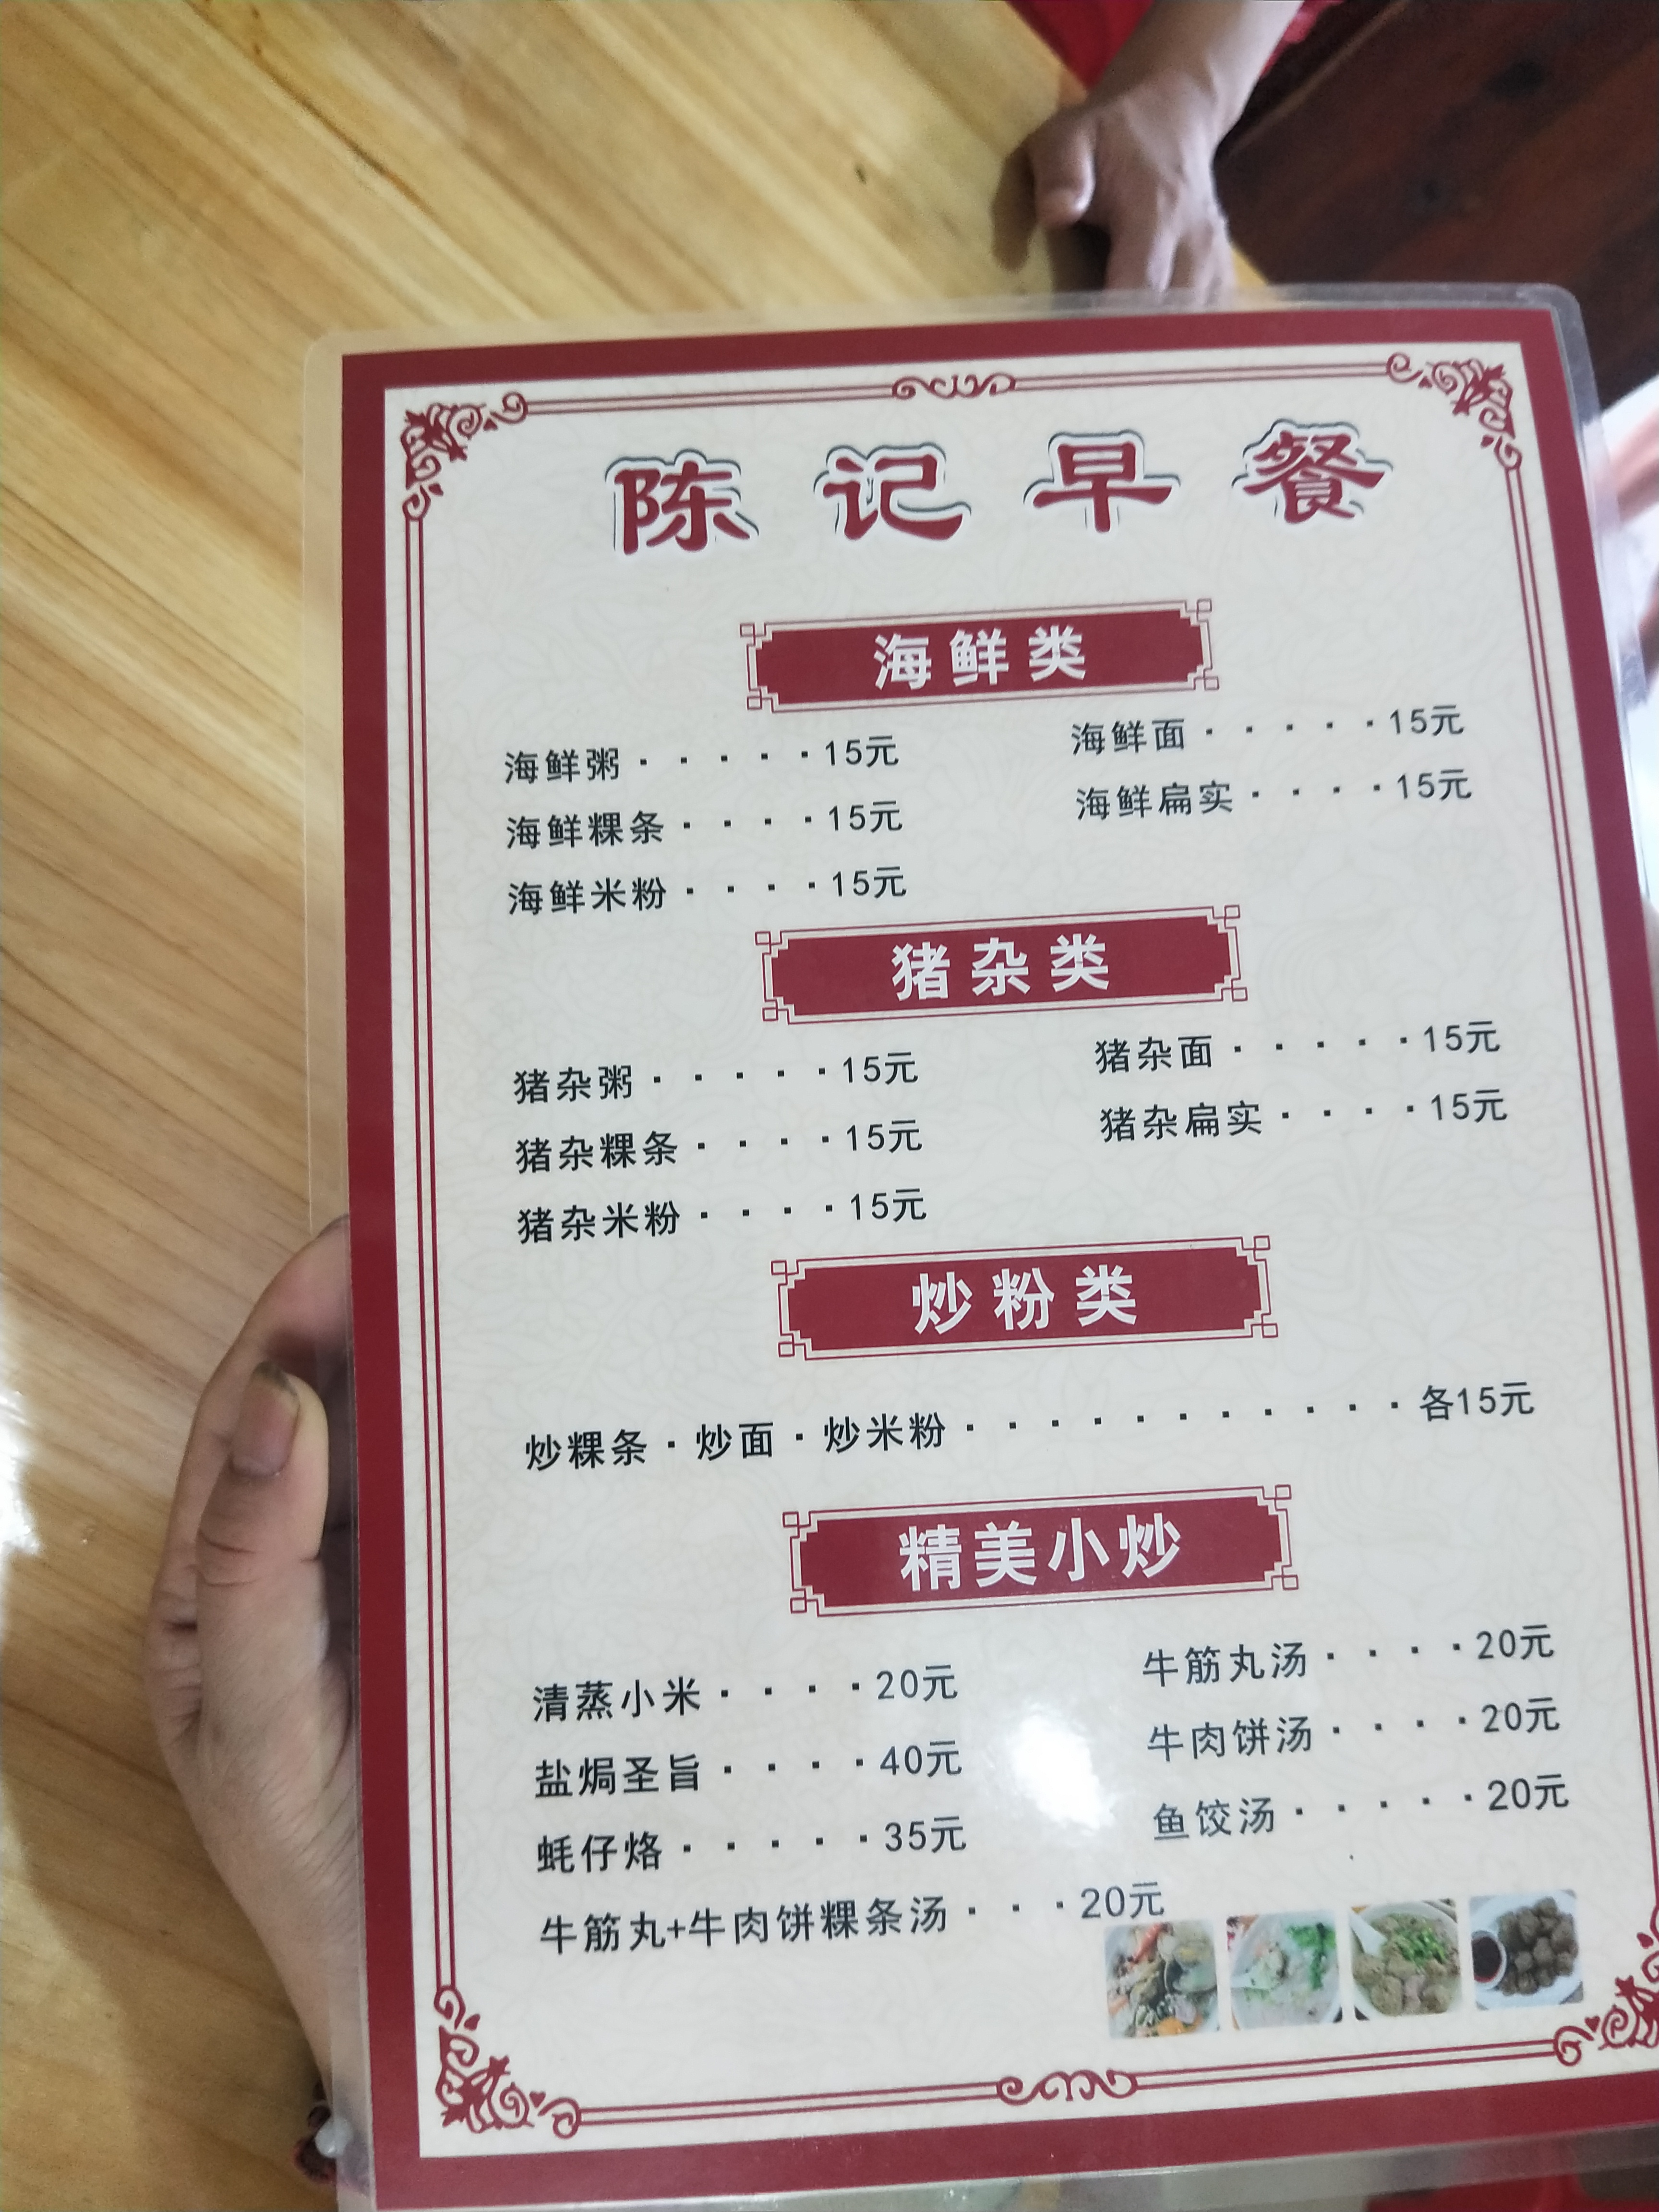 陈记早餐
海鲜类
海鲜粥·····15元
海鲜面·····15元
海鲜粿条····15元
海鲜扁实····15元
海鲜米粉····15元
猪杂类
猪杂粥·····15元
猪杂面·····15元
猪杂粿条····15元
猪杂扁实····15元
猪杂米粉····15元
炒粉类
炒粿条·炒面·炒米粉···········各15元
精美小炒
清蒸小米····20元
牛筋丸汤····20元
盐焗圣旨····40元
牛肉饼汤····20元
蚝仔烙·····35元
鱼饺汤·····20元
牛筋丸+牛肉饼粿条汤···20元